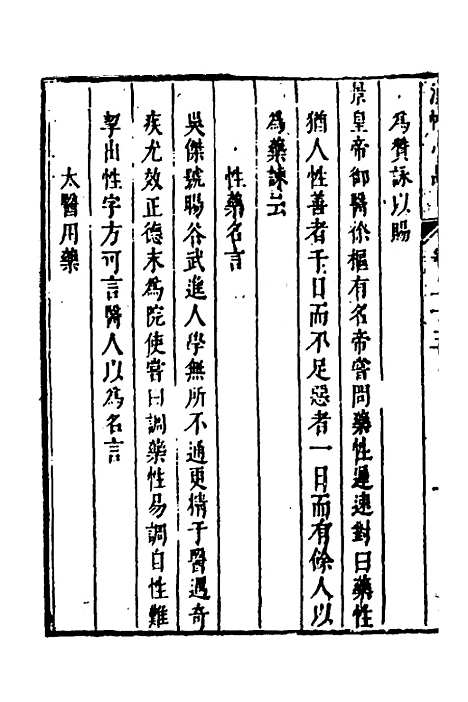 為贊詠以賜
景皇帝御醫徐樞有名帝嘗問藥性遲速對曰藥性
猶人性善者千日而不足惡者一日而有餘人以
為藥諫云
性藥名言
吳傑號暘谷武進人學無所不通更精于醫遇奇
疾尤效正德末為院使嘗曰調藥性易調自性難
挈出性字方可言醫人以為名言
太醫用藥